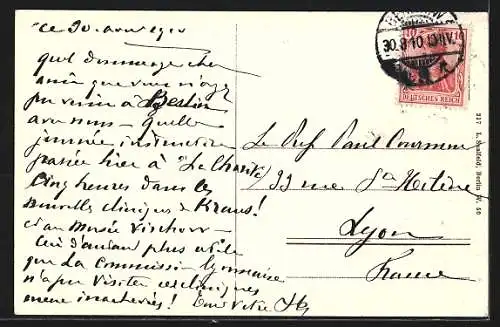 ce 30 août 1910
quel dommage cher
ami que vous n'ayez
pu venir à Berlin
avec nous - quelle
journée instructive
passée hier à "La Charité"
Cinq heures dans les
nouvelles cliniques de Kraus!
et au Musée Virchow -
C'est d'autant plus utile
que la Commission lyonnaise
n'a pu visiter ces cliniques
même inachevées! Tout votre
Le Prof Paul Courmont
33 rue Ste Hélène
Lyon
France
BERLIN
30.8.10
10
10
DEUTSCHES REICH
217 L. Saalfeld, Berlin W. 50